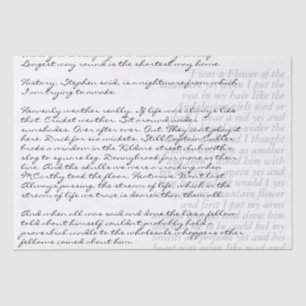 Longest way round is the shortest way home.
History, Stephen said, is a nightmare from which
I am trying to awake.
Heavenly weather really. If life was always like
that. Cricket weather. Sit around under
sunshades. Over after over. Out. They can't play it
here. Duck for six wickets. Still Captain Culler
broke a window in the Kildare street club with a
slog to square leg. Donnybrook fair more in their
line. And the skulls we were acracking when
M'Carthy took the floor. Heatwave. Won't last.
Always passing, the stream of life, which in the
stream of life we trace is dearer than them all.
And when all was said and done the lies a fellow
told about himself couldn't probably hold a
proverbial candle to the wholesale whoppers other
fellows coined about him.
I was a Flower of the
I put the
rose in my hair like the
Andalusian girls used or
wear a red yes and
him with
again yes
mountain flower
and first I put my arms
drew him
he could feel my
breasts perfume yes and his
heart was going like mad and